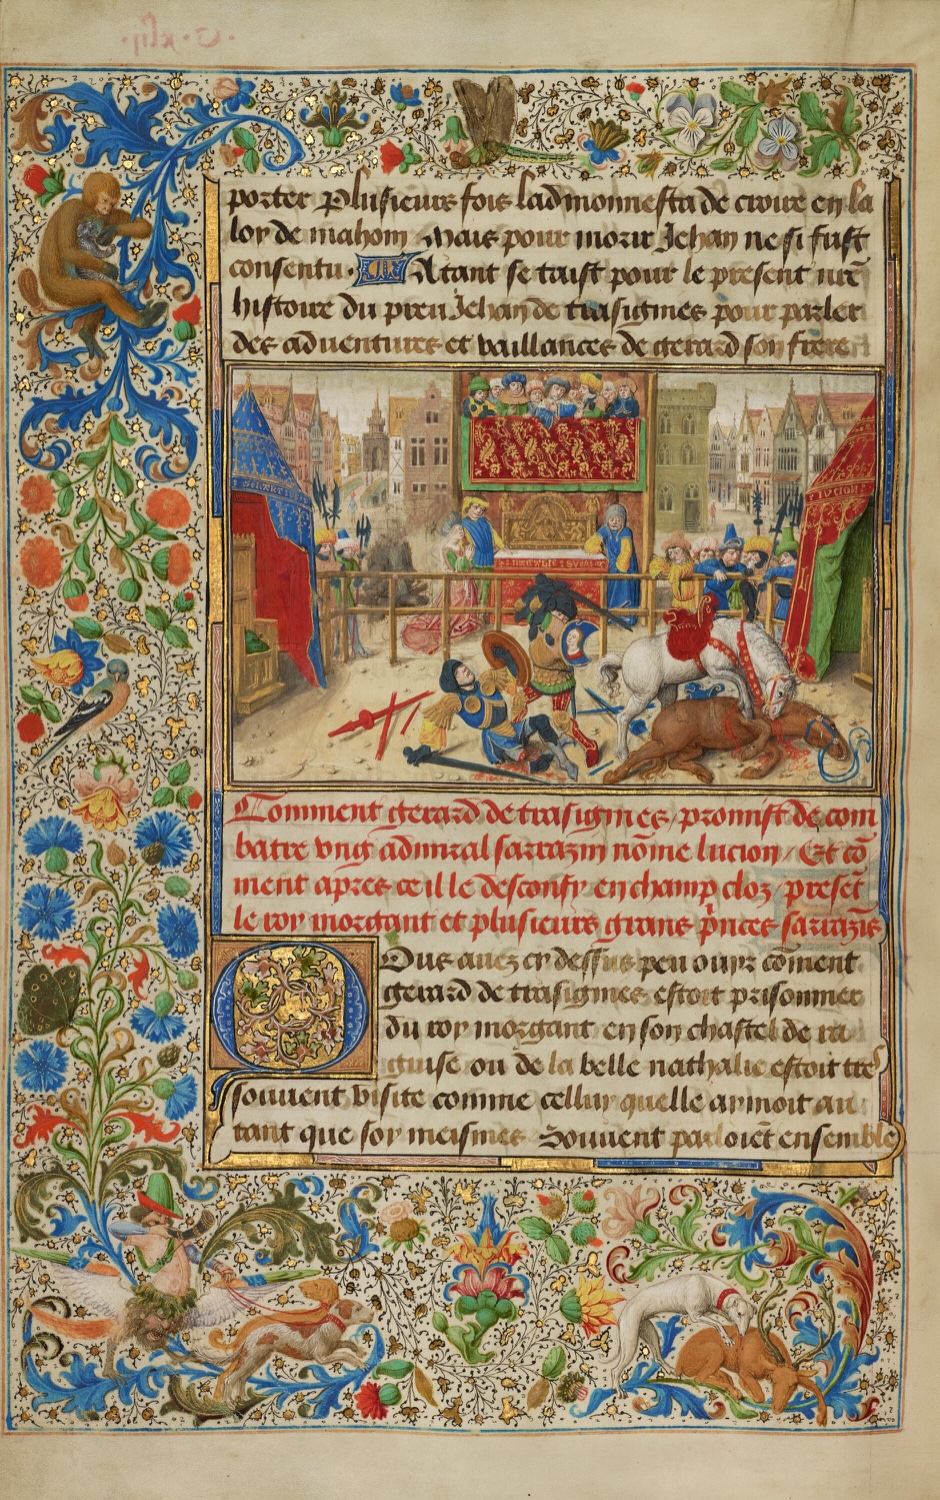 porter Plusieurs fois ladmonnesta de croire en la
loy de mahom Mais pour morir Jehan ne si fust
consentu. Atant se taist pour le present nr̄e
histoire du preu Jehan de trasignies pour parler
des aduentures et vaillances de gerard son frere
GERART
LUCION
Comment gerard de trasignies promist de com
batre vng admiral sarrazin nōme lucion / Et cō
ment apres ce il le desconfy en champ cloz preset̄
le roy morgant et plusieurs grans p̄nces sarrazīs
Ous auez cy dessus peu ouyr cōment
gerard de trasignies estoit prisonnier
du roy morgant en son chastel de ra
guise ou de la belle nathalie estoit tres
souuent visite comme celluy quelle aymoit au
tant que soy meismes Souuent parloiēt ensemble